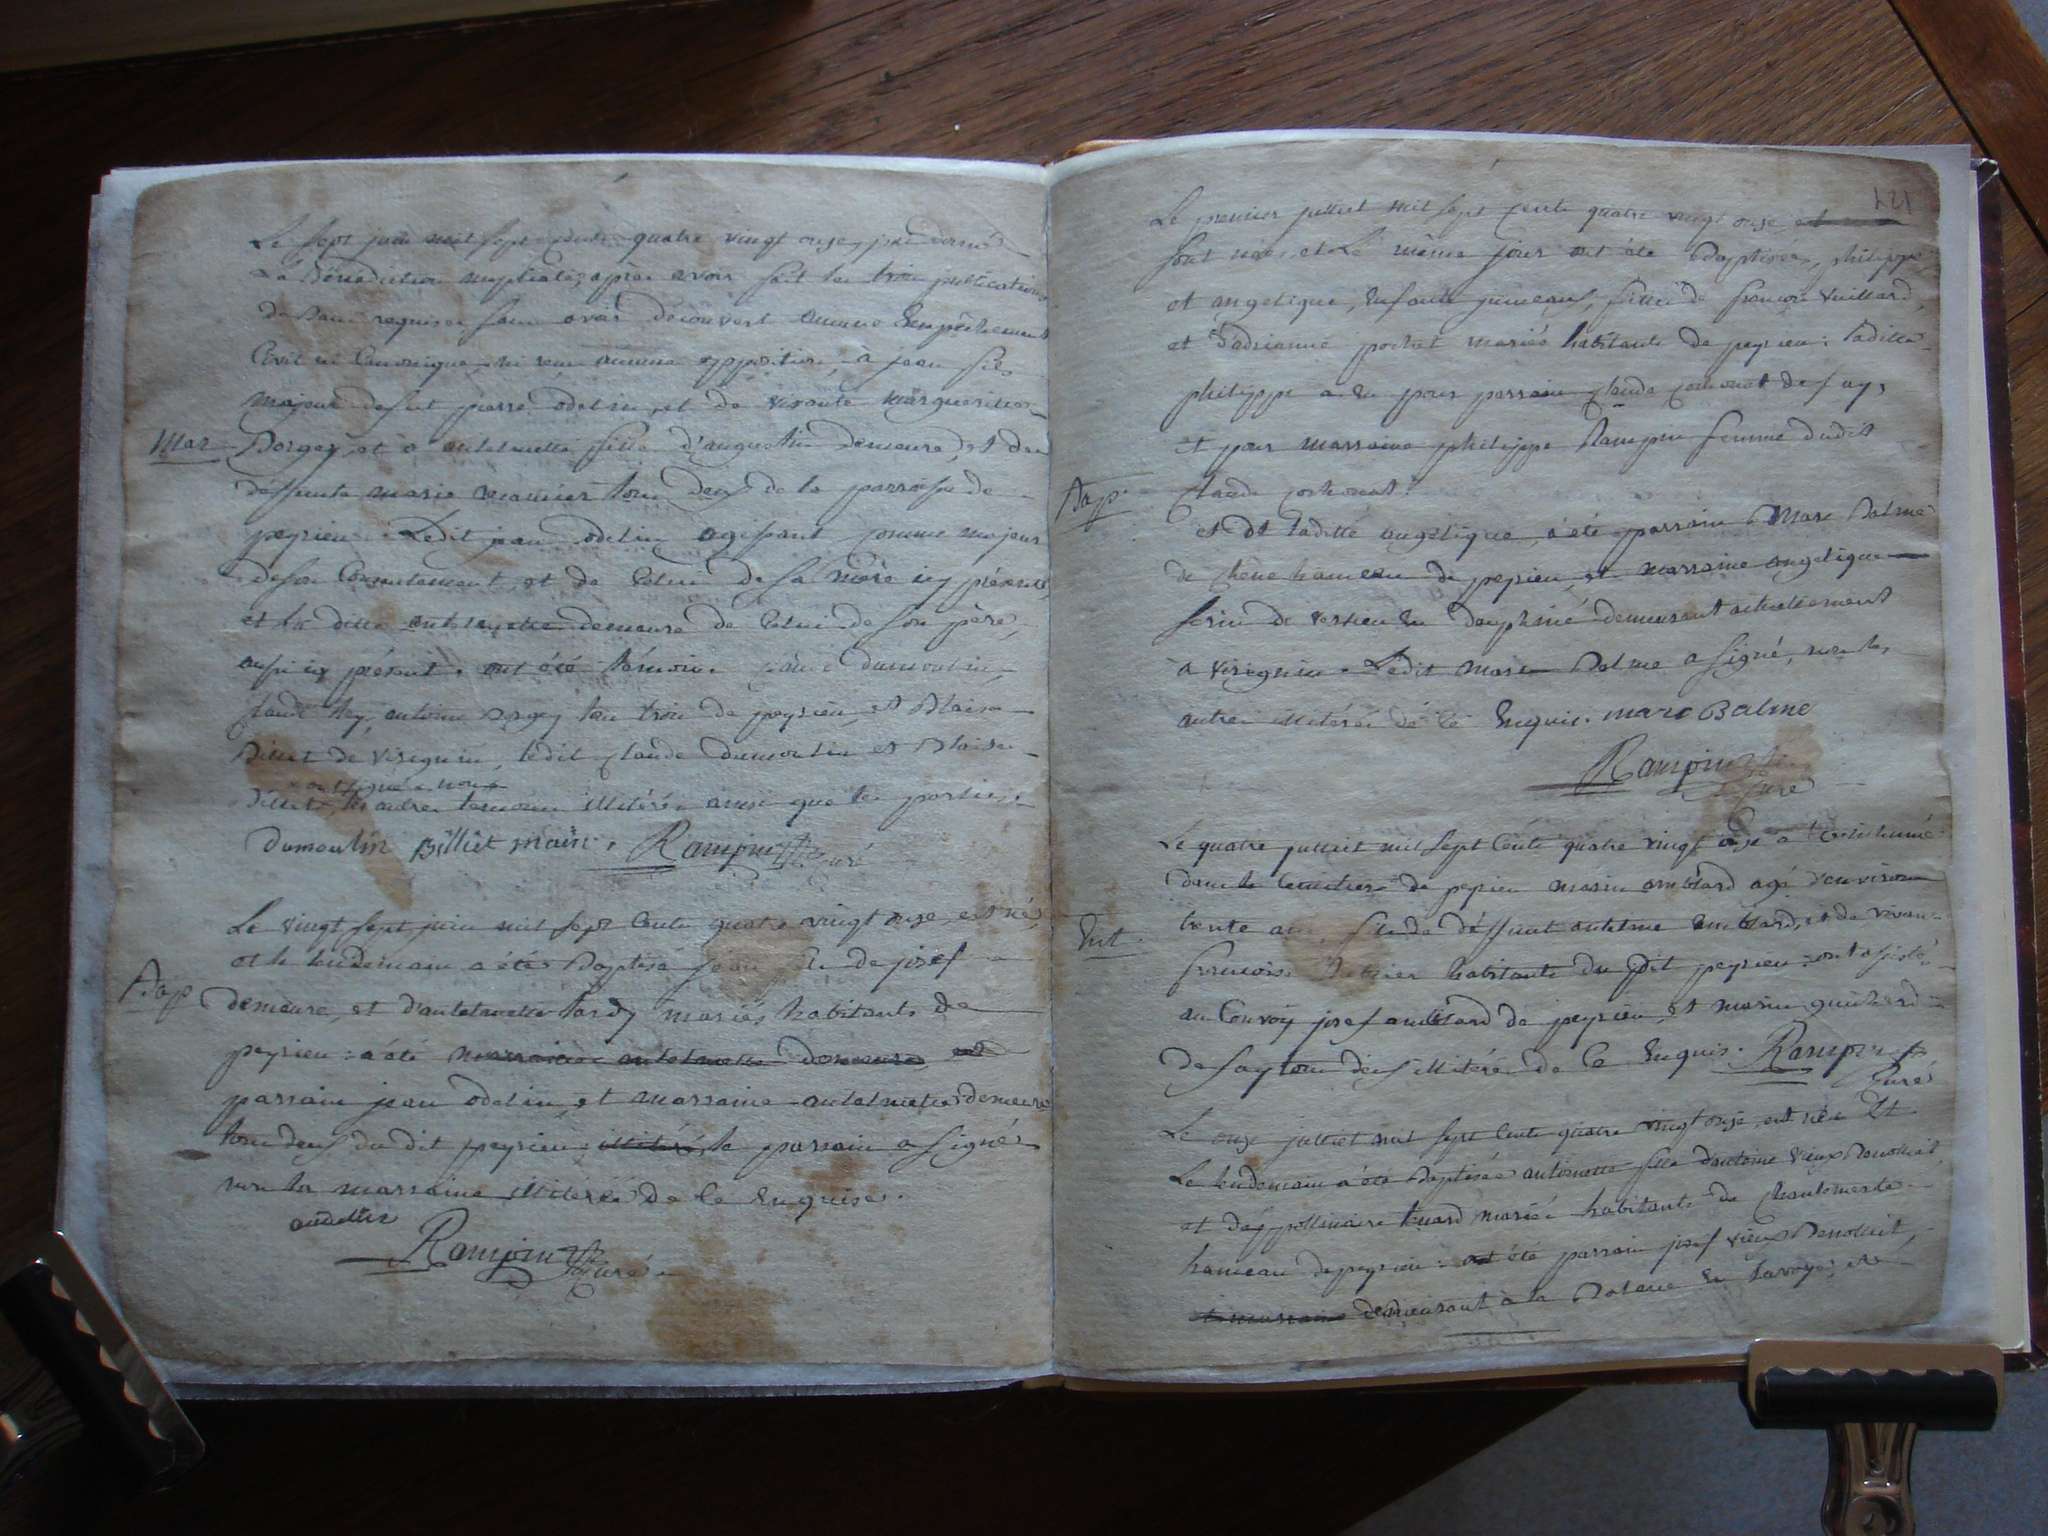 Le sept juin mil sept cents quatre vingt onze, j'ai donné
La Bénédiction nuptiale, après avoir fait les trois publications
de Bans requises sans avoir découvert aucune Empêchement
Civil ni Canonique, ni reçu aucune opposition, à jean fils
majeur defunt pierre odelin, et de vivante Marguerite
Mar
Borgey, et à antelmette fille d'augustin demeure, et de
déffunte marie tous deux de la parroisse de
peyrieu. Ledit jean odelin agissant comme majeur
de son Consentement, et de Celui de sa mère icy présente,
et la ditte antelmette demeure de Celui de son père,
aussi icy présent. ont été témoins claude dumoulin,
claude Rey, antoine orgey tous trois de peyrieu, et Blaise
Billiet de virignin, ledit claude dumoulin et Blaise
ont signé a nous
Billiet, les autres temoins illitérés ainsi que les parties.
Dumoulin Billiet maire. Rampin Curé
Le vingt sept juin mil sept Cents quatre vingt onze, est né,
et le lendemain a été Baptisé jean fils de josef
Bap
demeure, et d'antelmette tardy mariés habitants de
peyrieu : a été marraine antelmette demeure et
parrain jean odelin, et marraine antelmette demeure
tous deux du dit peyrieu illitérés le parrain a signé
non la marraine illitérée de Ce Enquise.
audelin
Rampin Curé
121
Le premier juillet mil sept Cents quatre vingt onze, et
sont nés, et Le même jour ont été Baptisés, philippe
et angelique, Enfants jumeaux, filles de françois Vuillard,
et d'adrianne pochet mariés habitants de peyrieu : laditte
philippe a Eu pour parrain claude cochonat de fay,
et pour marraine philippe Rampin femme dudit
claude cochonat.
Bap.
et de laditte angelique, a été parrain Marc Balme
de chêne hameau de peyrieu, et marraine angelique
ferin de vertieu En dauphiné demeurant actuellement
à virignin. Ledit marc Balme a signé, non les
autres illitérés de Ce Enquis. marc Balme
Rampin Curé
Le quatre juillet mil sept Cents quatre vingt onze a été inhumé
dans le Cimetière de peyrieu marin amblard agé d'environ
Ent.
trente ans, fils de déffunt antelme amblard, et de vivante
françoise habitants du dit peyrieu : ont assisté
au Convoy josef amblard de peyrieu, et marin guichard
de fay tous deux illitérés de Ce Enquis. Rampin
Curé
Le onze juillet mil sept Cents quatre vingt onze, est née Et
Le lendemain a été Baptisée antoinette fille d'antoine vieux Benollait,
et d'appollinaire huard mariés habitants de Chantemerle
hameau de peyrieu : a été parrain josef vieux Benollait,
et marraine demeurant à la Balme En Savoye, et